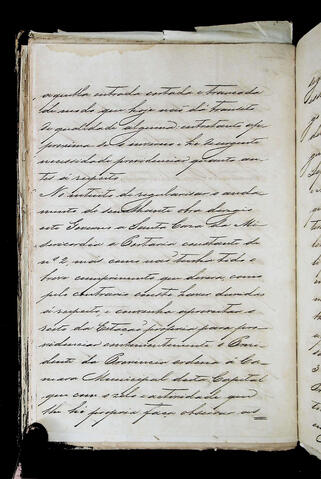 aquella entrada cortada e trancada
de modo que hoje não dá transito
de qualidade alguma entretanto ap
proxima-se o inverno e he urgente
necessidade providenciar quanto an
tes a respeito.
No intuito de regularisar o anda
mento de semelhante obra dirigio
este Governo a Santa Casa da Mi
sericordia a Portaria constante do
nº 2, mas como não tenha tido o
breve cumprimento que devera como
pelo contrario consta haver duvidas
a respeito, e convenha aproveitar o
resto da Estação propria para pro
videnciar convenientemente o Presi
dente da Provincia ordena á Ca
mara Municipal desta Capital
que com o zelo e actividade que
lhe he propria faça observar as